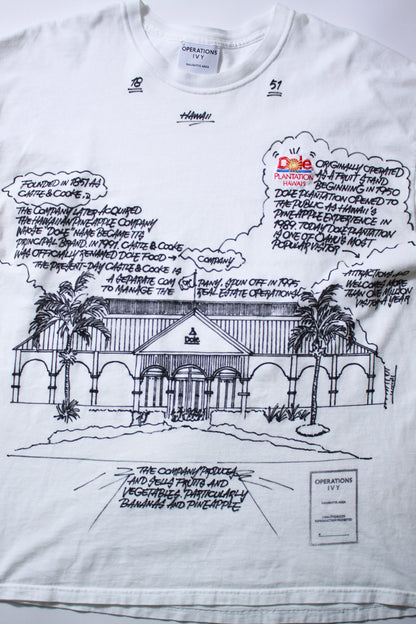 OPERATIONS
IVY
18 51
HAWAII
FOUNDED IN 1851 AS
CASTLE & COOKE,
THE COMPANY LATER ACQUIRED
THE HAWAIIAN PINEAPPLE COMPANY
WHOSE "DOLE" NAME BECAME THE
PRINCIPAL BRAND. IN 1991, CASTLE & COOKE
WAS OFFICIALLY RENAMED DOLE FOOD → COMPANY
THE PRESENT-DAY CASTLE & COOKE IS
A SEPARATE COMPANY, SPUN OFF IN 1995
TO MANAGE THE REAL ESTATE OPERATIONS
Dole
PLANTATION
HAWAII
ORIGINALLY OPERATED
AS A FRUIT STAND
BEGINNING IN 1950
DOLE PLANTATION OPENED TO
THE PUBLIC AS HAWAII'S
PINEAPPLE EXPERIENCE IN
1989. TODAY, DOLE PLANTATION
IS ONE OF OAHU'S MOST
POPULAR VISITOR
ATTRACTIONS AND
WELCOMES MORE
THAN ONE MILLION
VISITORS A YEAR
Dole
THE COMPANY PRODUCES
AND SELLS FRUITS AND
VEGETABLES, PARTICULARLY
BANANAS AND PINEAPPLE
OPERATIONS
IVY